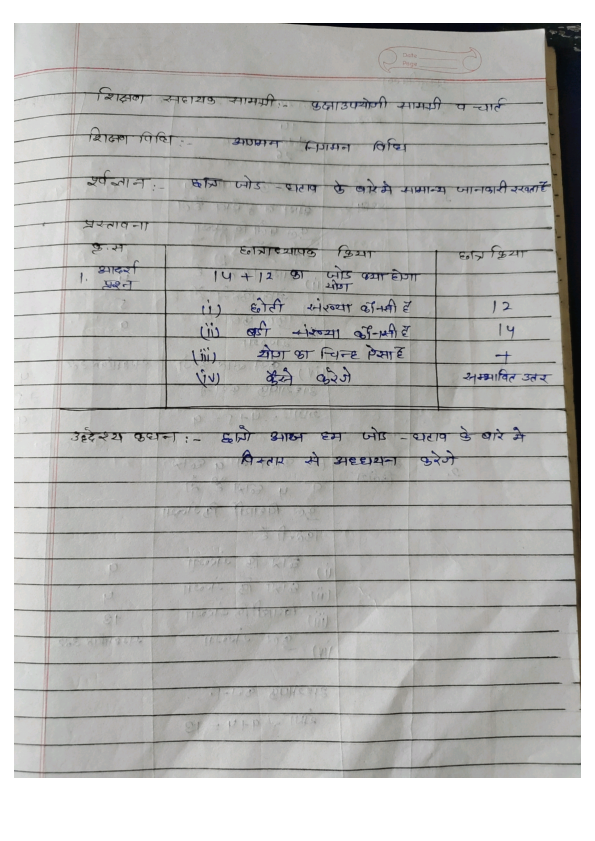 Date
Page
शिक्षण सहायक सामग्री:- कक्षाउपयोगी सामग्री व चार्ट
शिक्षण विधि:- आगमन निगमन विधि
पूर्वज्ञान:- छात्र जोड - घटाव के बारे मे सामान्य जानकारी रखता है
प्रस्तावना
कृ.स छात्राध्यापक क्रिया छात्र क्रिया
1. आदर्श प्रश्न 14 + 12 का जोड क्या होगा
योग
(i) छोटी संख्या कौनसी है 12
(ii) बडी संख्या कौनसी है 14
(iii) योग का चिन्ह ऐसा है +
(iv) कैसे करेगे सम्भावित उतर
उद्देश्य कथन:- छात्रो आज हम जोड - घटाव के बारे मे
विस्तार से अध्ध्यन करेगे